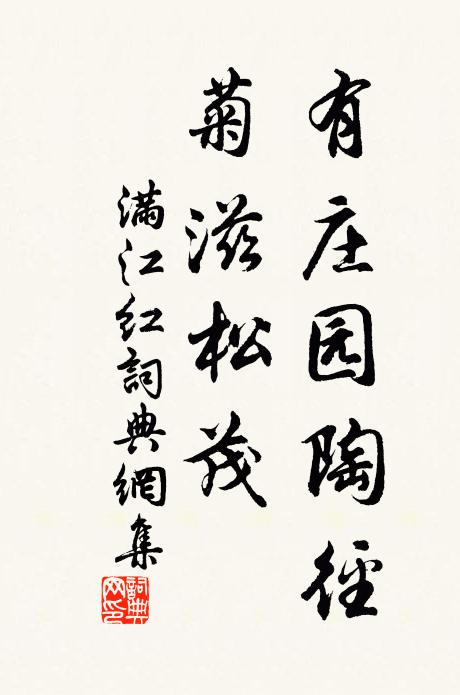 有庄园陶徑
菊滋松茂
满江红詞典網集
詞典网印